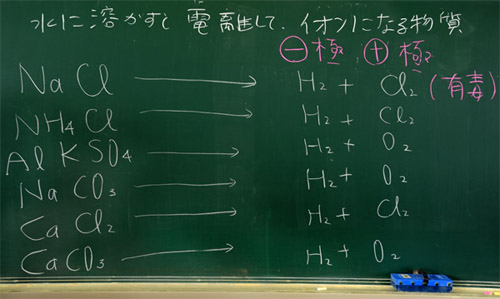 水に溶かすと電離して、イオンになる物質
⊖極 ⊕極
NaCl → H₂ + Cl₂ (有毒)
NH₄Cl → H₂ + Cl₂
AlKSO₄ → H₂ + O₂
NaCO₃ → H₂ + O₂
CaCl₂ → H₂ + Cl₂
CaCO₃ → H₂ + O₂